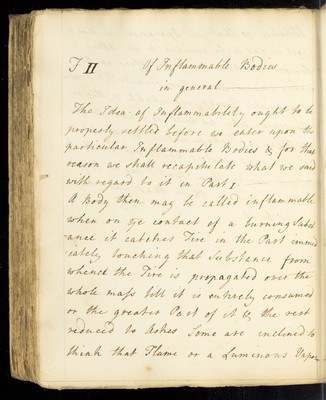 F II Of Inflammable Bodies
in general
The Idea of Inflammability ought to be
properly settled before we enter upon the
particular Inflammable Bodies & for that
reason we shall recapitulate what we said
with regard to it in Part 1
A Body then may be called inflammable
when on ye contact of a burning Subst
-ance it catches Fire in the Part immed
-iately touching that Substance from
whence the Fire is propagated over the
whole mass till it is entirely consumed
or the greater Part of it & the rest
reduced to Ashes Some are inclined to
think that Flame or a Luminous Vapor